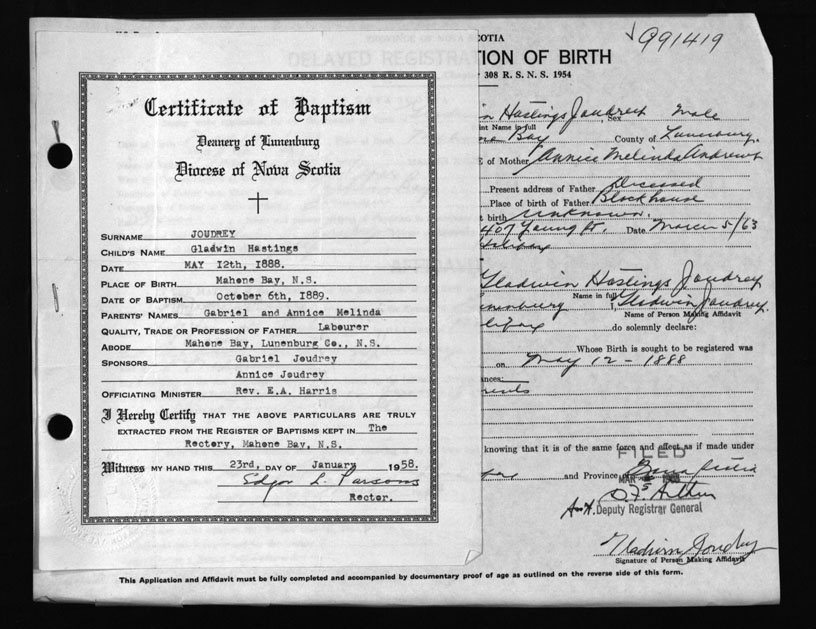 Certificate of Baptism
Deanery of Lunenburg
Diocese of Nova Scotia
SURNAME JOUDREY
CHILD'S NAME Gladwin Hastings
DATE MAY 12th, 1888.
PLACE OF BIRTH Mahone Bay, N.S.
DATE OF BAPTISM October 6th, 1889.
PARENTS' NAMES Gabriel and Annice Melinda
QUALITY, TRADE OR PROFESSION OF FATHER Labourer
ABODE Mahone Bay, Lunenburg Co., N.S.
SPONSORS Gabriel Joudrey
Annice Joudrey
OFFICIATING MINISTER Rev. E.A. Harris
I Hereby Certify THAT THE ABOVE PARTICULARS ARE TRULY
EXTRACTED FROM THE REGISTER OF BAPTISMS KEPT IN The
Rectory, Mahone Bay, N.S.
Witness MY HAND THIS 23rd, DAY OF January 1958.
Edgar L. Parsons
Rector.
991419
COTIA
TION OF BIRTH
308 R. S. N. S. 1954
Hastings Joudrey Sex Male
int Name in full
Bay County of Lunenburg.
E of Mother Annice Melinda Andrews
Present address of Father Deceased
Place of birth of Father Blockhouse
t birth unknown.
407 Young St. Date March 5/63
Halifax
Gladwin Hastings Joudrey
Name in full
nenburg I, Gladwin Joudrey.
Name of Person Making Affidavit
lifax do solemnly declare:
Whose Birth is sought to be registered was
on May 12 - 1888
ances:
rents
knowing that it is of the same force and effect as if made under
FILED
and Province
MAR 5
Deputy Registrar General
Gladwin Joudrey
Signature of Person Making Affidavit
This Application and Affidavit must be fully completed and accompanied by documentary proof of age as outlined on the reverse side of this form.